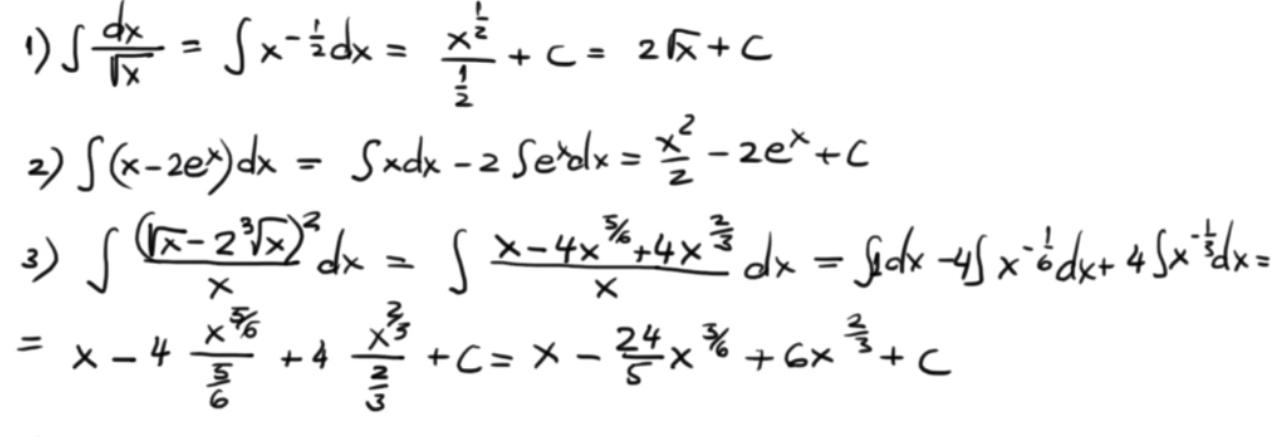 1) ∫ dx/√x = ∫ x^(-1/2) dx = x^(1/2)/(1/2) + C = 2√x + C
2) ∫(x-2e^x)dx = ∫xdx - 2∫e^x dx = x^2/2 - 2e^x + C
3) ∫ (√x - 2∛x)^2/x dx = ∫ (x - 4x^(5/6) + 4x^(2/3))/x dx = ∫1dx - 4∫x^(-1/6) dx + 4∫x^(-1/3) dx =
= x - 4 x^(5/6)/(5/6) + 4 x^(2/3)/(2/3) + C = x - 24/5 x^(5/6) + 6x^(2/3) + C